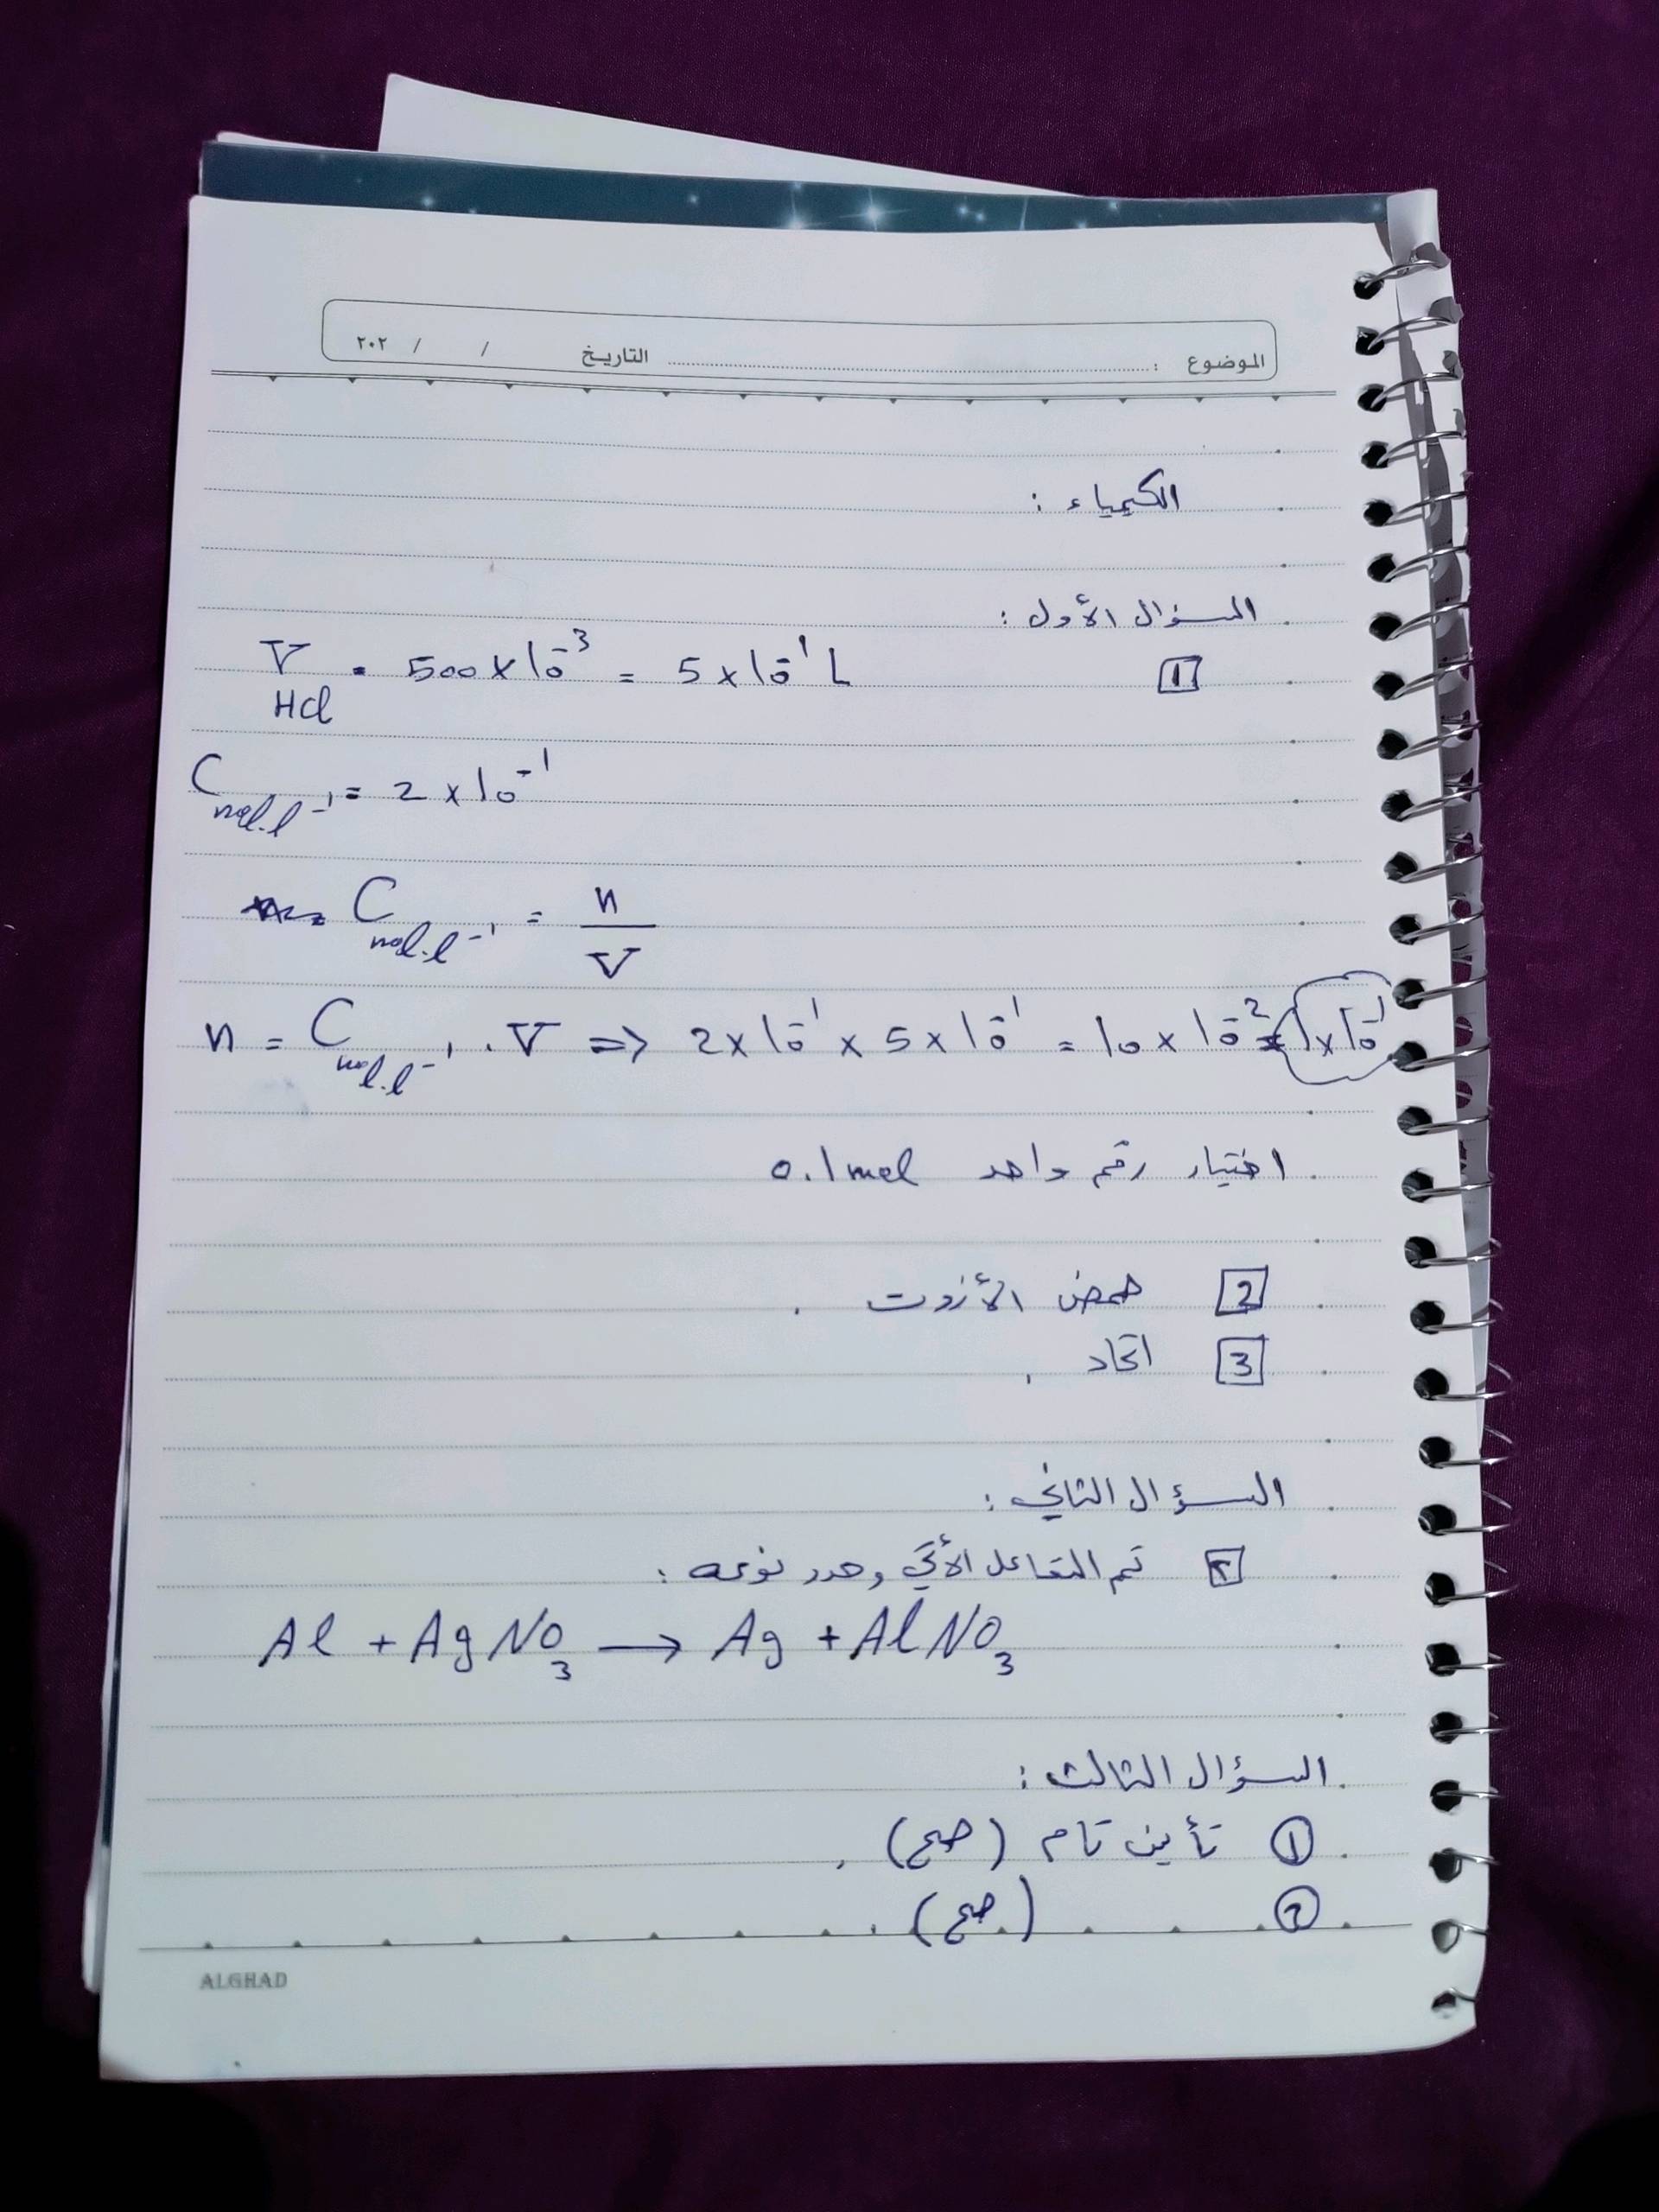 الموضوع : التاريخ / / ٢٠٢
الكيمياء :
السؤال الأول :
1 V HCl = 500 x 10^-3 = 5 x 10^-1 L
C mol.l^-1 = 2 x 10^-1
C mol.l^-1 = n / V
n = C mol.l^-1 . V => 2 x 10^-1 x 5 x 10^-1 = 10 x 10^-2 = 1 x 10^-1
اختيار رقم واحد 0.1 mol
2 حمض الأزوت .
3 اتحاد .
السؤال الثاني :
2 تم التفاعل الأتي وحدد نوعه :
Al + AgNO3 → Ag + AlNO3
السؤال الثالث :
1 تأين تام (صح) .
2 (صح) .
ALGHAD